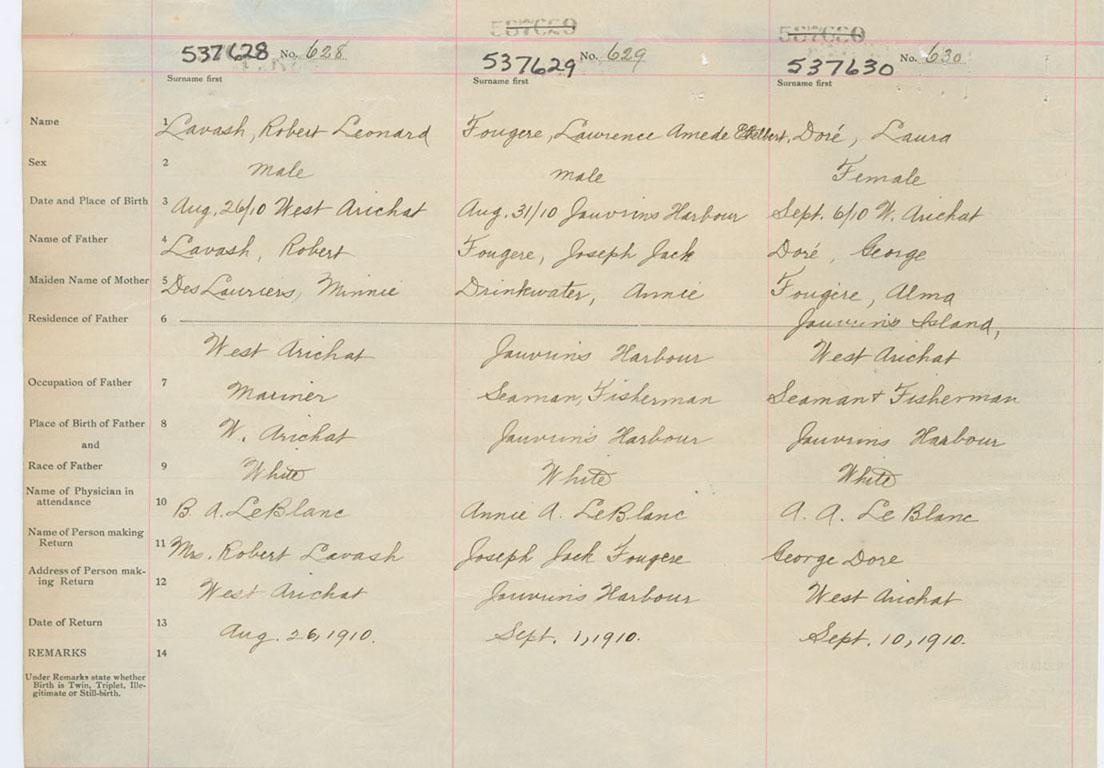 537628 No. 628
537629 No. 629
537630 No. 630
Surname first Surname first Surname first
Name 1 Lavash, Robert Leonard Fougere, Lawrence Amede Doré, Laura
Sex 2 male male Female
Date and Place of Birth 3 Aug. 26/10 West Arichat Aug. 31/10 Jauvrins Harbour Sept. 6/10 W. Arichat
Name of Father 4 Lavash, Robert Fougere, Joseph Jack Doré, George
Maiden Name of Mother 5 DesLauriers, Minnie Drinkwater, Annie Fougère, Alma
Residence of Father 6 Jauvrins Island,
West Arichat Jauvrins Harbour West Arichat
Occupation of Father 7 Mariner Seaman, Fisherman Seaman & Fisherman
Place of Birth of Father 8 W. Arichat Jauvrins Harbour Jauvrins Harbour
and
Race of Father 9 White White White
Name of Physician in
attendance 10 B. A. LeBlanc Annie A. LeBlanc A. A. Le Blanc
Name of Person making
Return 11 Mrs. Robert Lavash Joseph Jack Fougere George Dore
Address of Person mak-
ing Return 12 West Arichat Jauvrins Harbour West Arichat
Date of Return 13 Aug. 26, 1910. Sept. 1, 1910. Sept. 10, 1910.
REMARKS 14
Under Remarks state whether
Birth is Twin, Triplet, Ille-
gitimate or Still-birth.